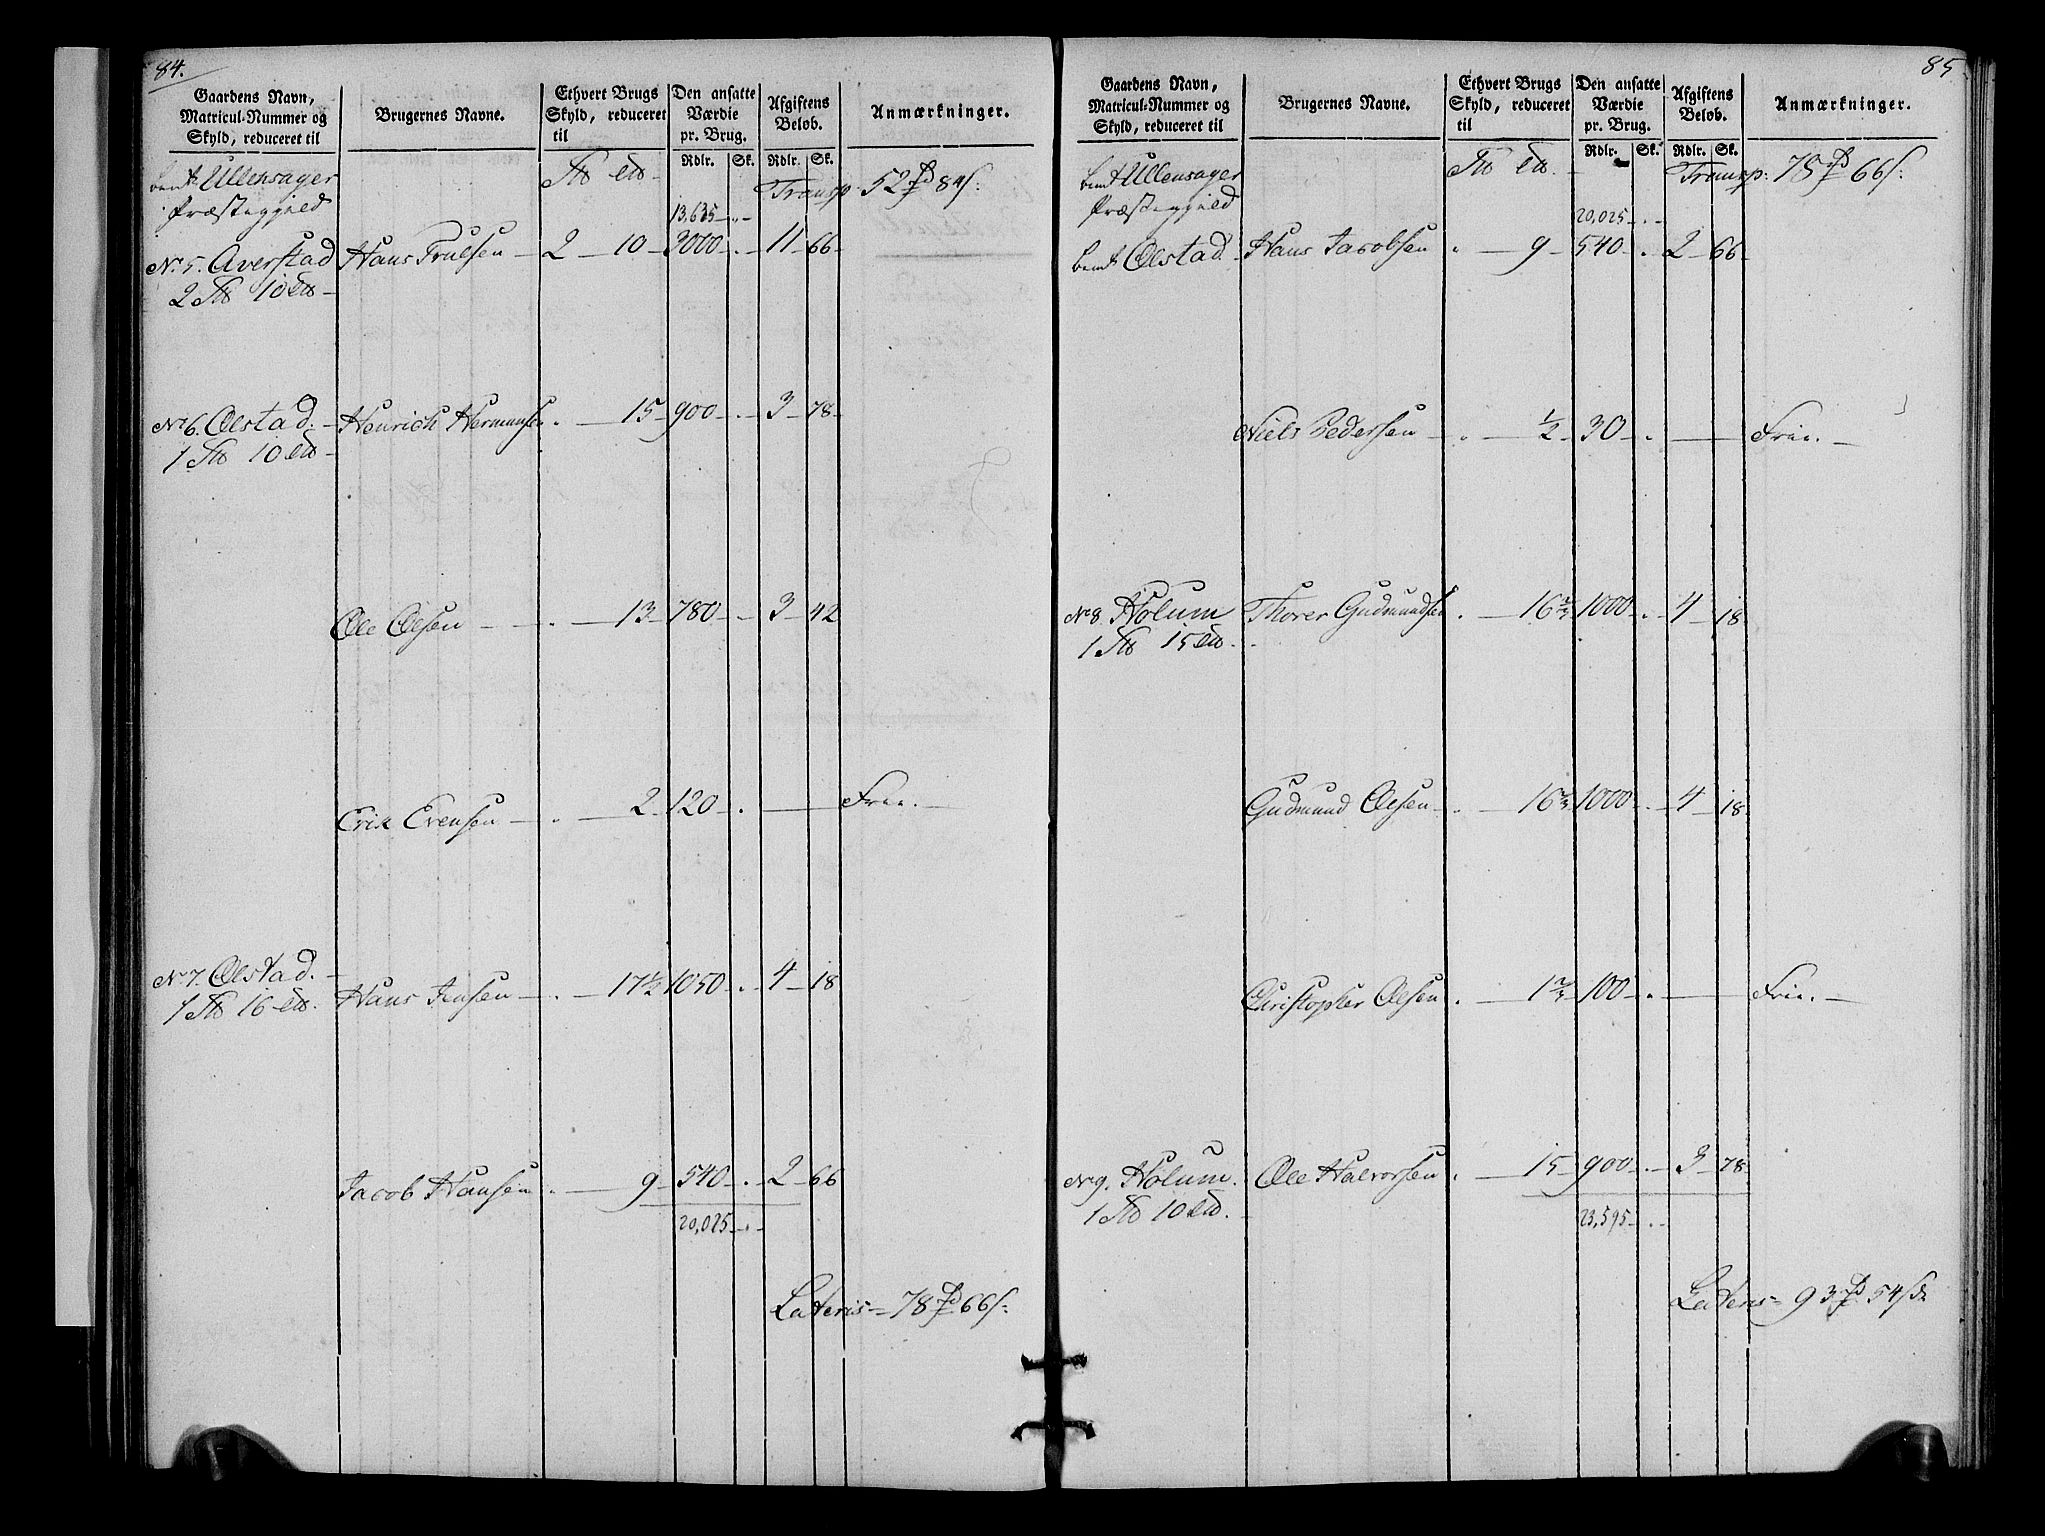 84.
Gaardens Navn, Matricul-Nummer og Skyld, reduceret til | Brugernes Navne. | Ethvert Brugs Skyld, reduceret til | Den ansatte Værdie pr. Brug. | Afgiftens Beløb. | Anmærkninger.
Rdlr. Sk. Rdlr. Sk.
bemt Ullensager Transp 52 84 s:
Præstegjeld 13,635
No 5. Averstad Hans Trulsen 2 10 3000 11 66
2 10
No 6. Ølstad. Henrich Hermansen 15 900 3 78
1 10
Ole Olsen 13 780 3 42
Erik Evensen 2 120 Frie.
No 7. Ølstad. Hans Jensen 17½ 1050 4 18
1 16
Jacob Hansen 9 540 2 66
20,025
Lateris 78 66 s:
85
Gaardens Navn, Matricul-Nummer og Skyld, reduceret til | Brugernes Navne. | Ethvert Brugs Skyld, reduceret til | Den ansatte Værdie pr. Brug. | Afgiftens Beløb. | Anmærkninger.
Rdlr. Sk. Rdlr. Sk.
bemt Ullensager Transp: 78 66 s:
Præstegjeld 20,025
bemt Ølstad Hans Jacobsen 9 540 2 66
Niels Pedersen ½ 30 Frie.
No 8. Holum Thorer Gudmundsen 16⅔ 1000 4 18
1 15
Gudmund Olsen 16⅔ 1000 4 18
Christopher Olsen 1⅔ 100 Frie.
No 9. Holum. Ole Halvorsen 15 900 3 78
1 10
23,595
Lateris 93 54